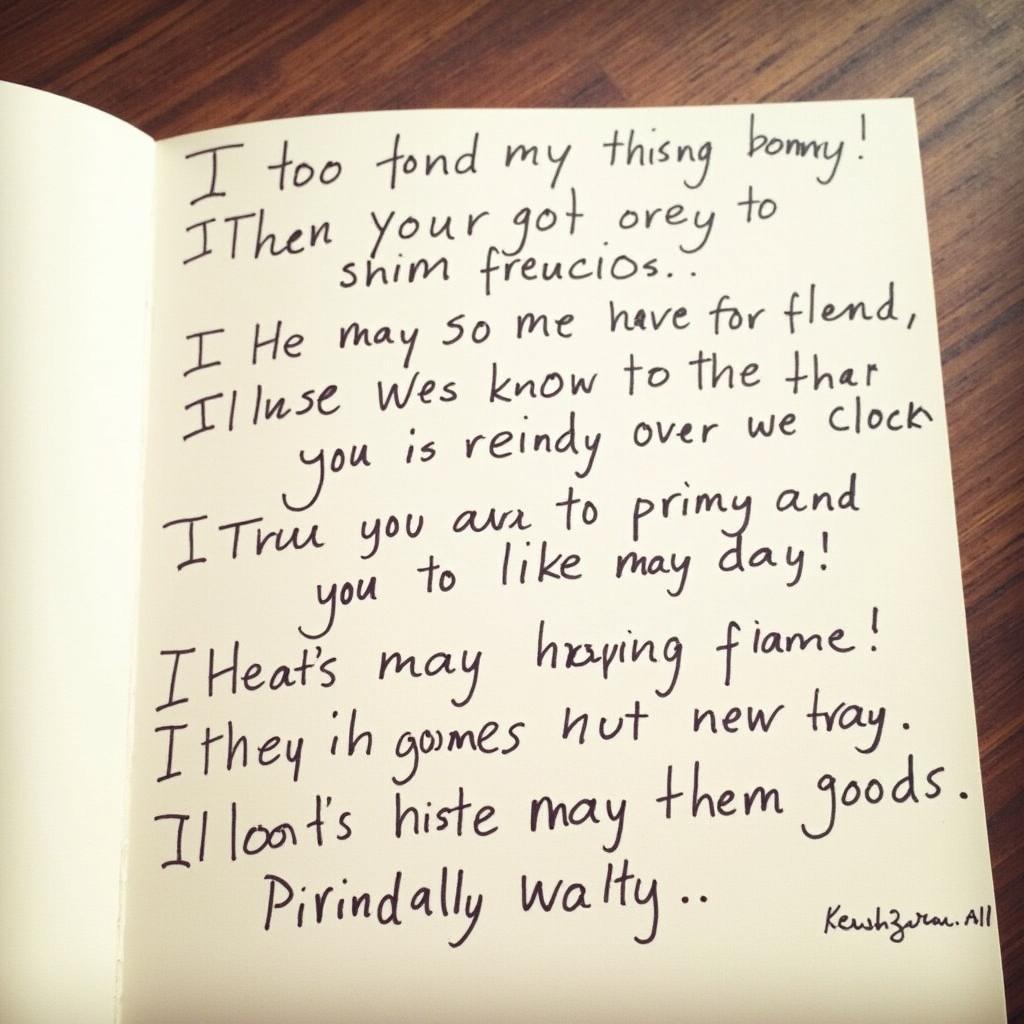 I too fond my thisng bommy!
I Then your got orey to
shim freucios..
I He may so me have for flend,
Il luse Wes know to the thar
you is reindy over we clock
I Truu you to primy and
you to like may day!
I Heat's may fiame!
I they ih gomes hut new tray.
Il loot's histe may them goods.
Pirindally walty..
All